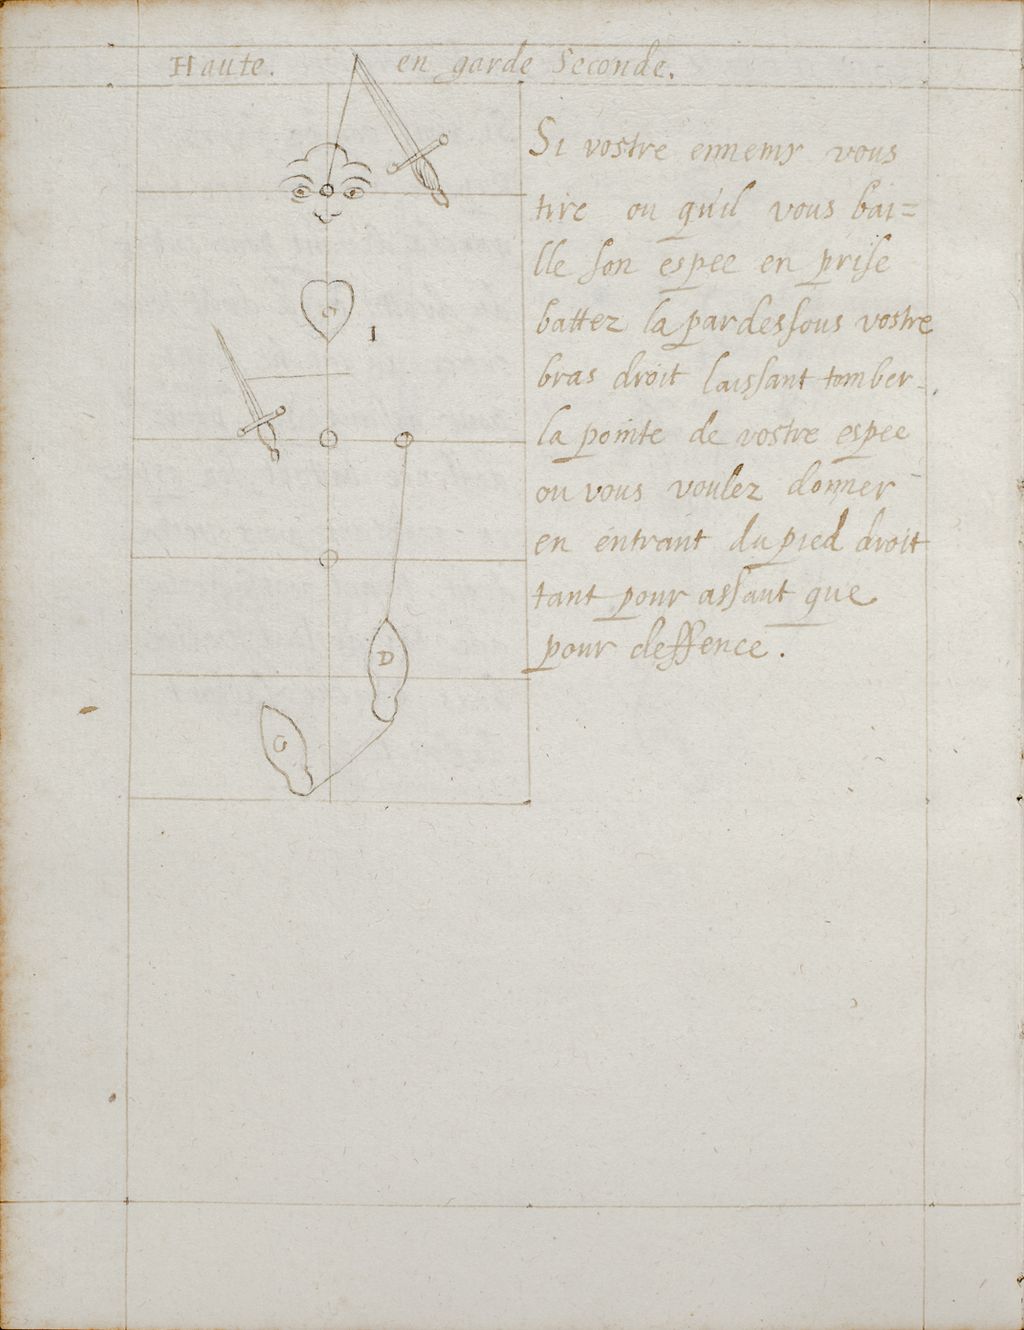 Haute. en garde Seconde.
Si vostre ennemy vous
tire ou qu'il vous bai=
lle son espee en prise
battez la pardessous vostre
bras droit laissant tomber
la pointe de vostre espee
ou vous voulez donner
en entrant du pied droit
tant pour assaut que
pour deffence.
G
1
D
G